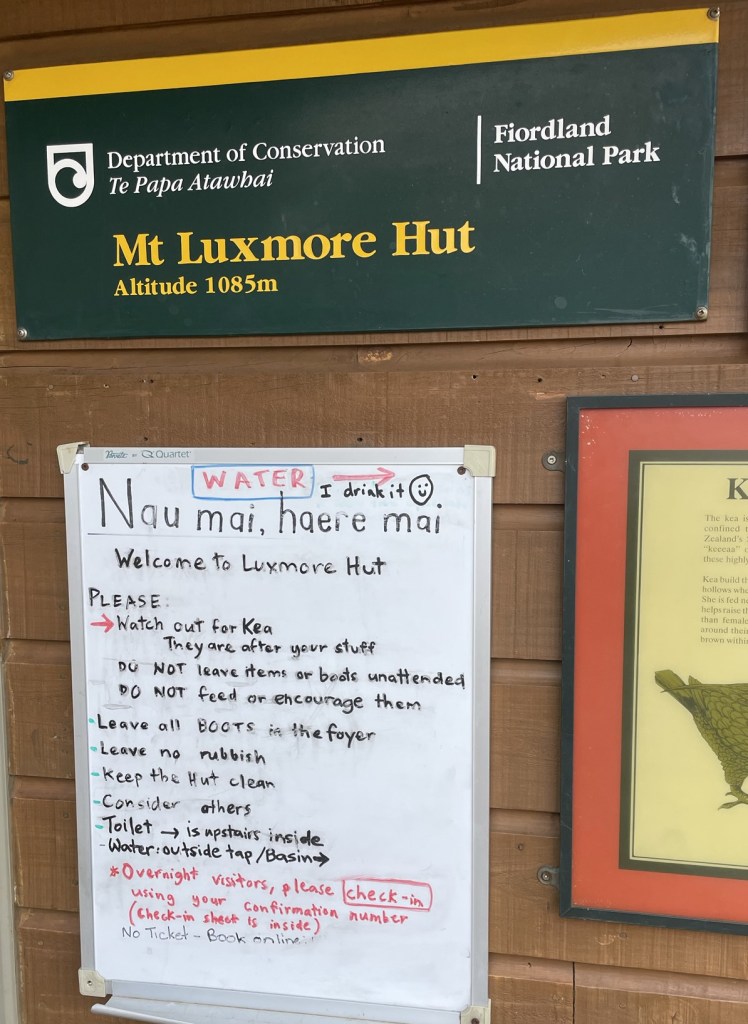 Department of Conservation
Te Papa Atawhai
Fiordland
National Park
Mt Luxmore Hut
Altitude 1085m
Quartet
WATER →
I drink it
Nau mai, haere mai
Welcome to Luxmore Hut
PLEASE:
→ Watch out for Kea
They are after your stuff
DO NOT leave items or boots unattended
DO NOT feed or encourage them
- Leave all BOOTS in the foyer
- Leave no rubbish
- Keep the Hut clean
- Consider others
- Toilet → is upstairs inside
- Water: outside tap / Basin →
* Overnight visitors, please check-in
using your confirmation number
(check-in sheet is inside)
No Ticket - Book online
K
The kea is
confined
Zealand's
"keeeaa"
these highly
Kea build th
hollows whe
She is fed ne
helps raise th
than female
around their
brown within